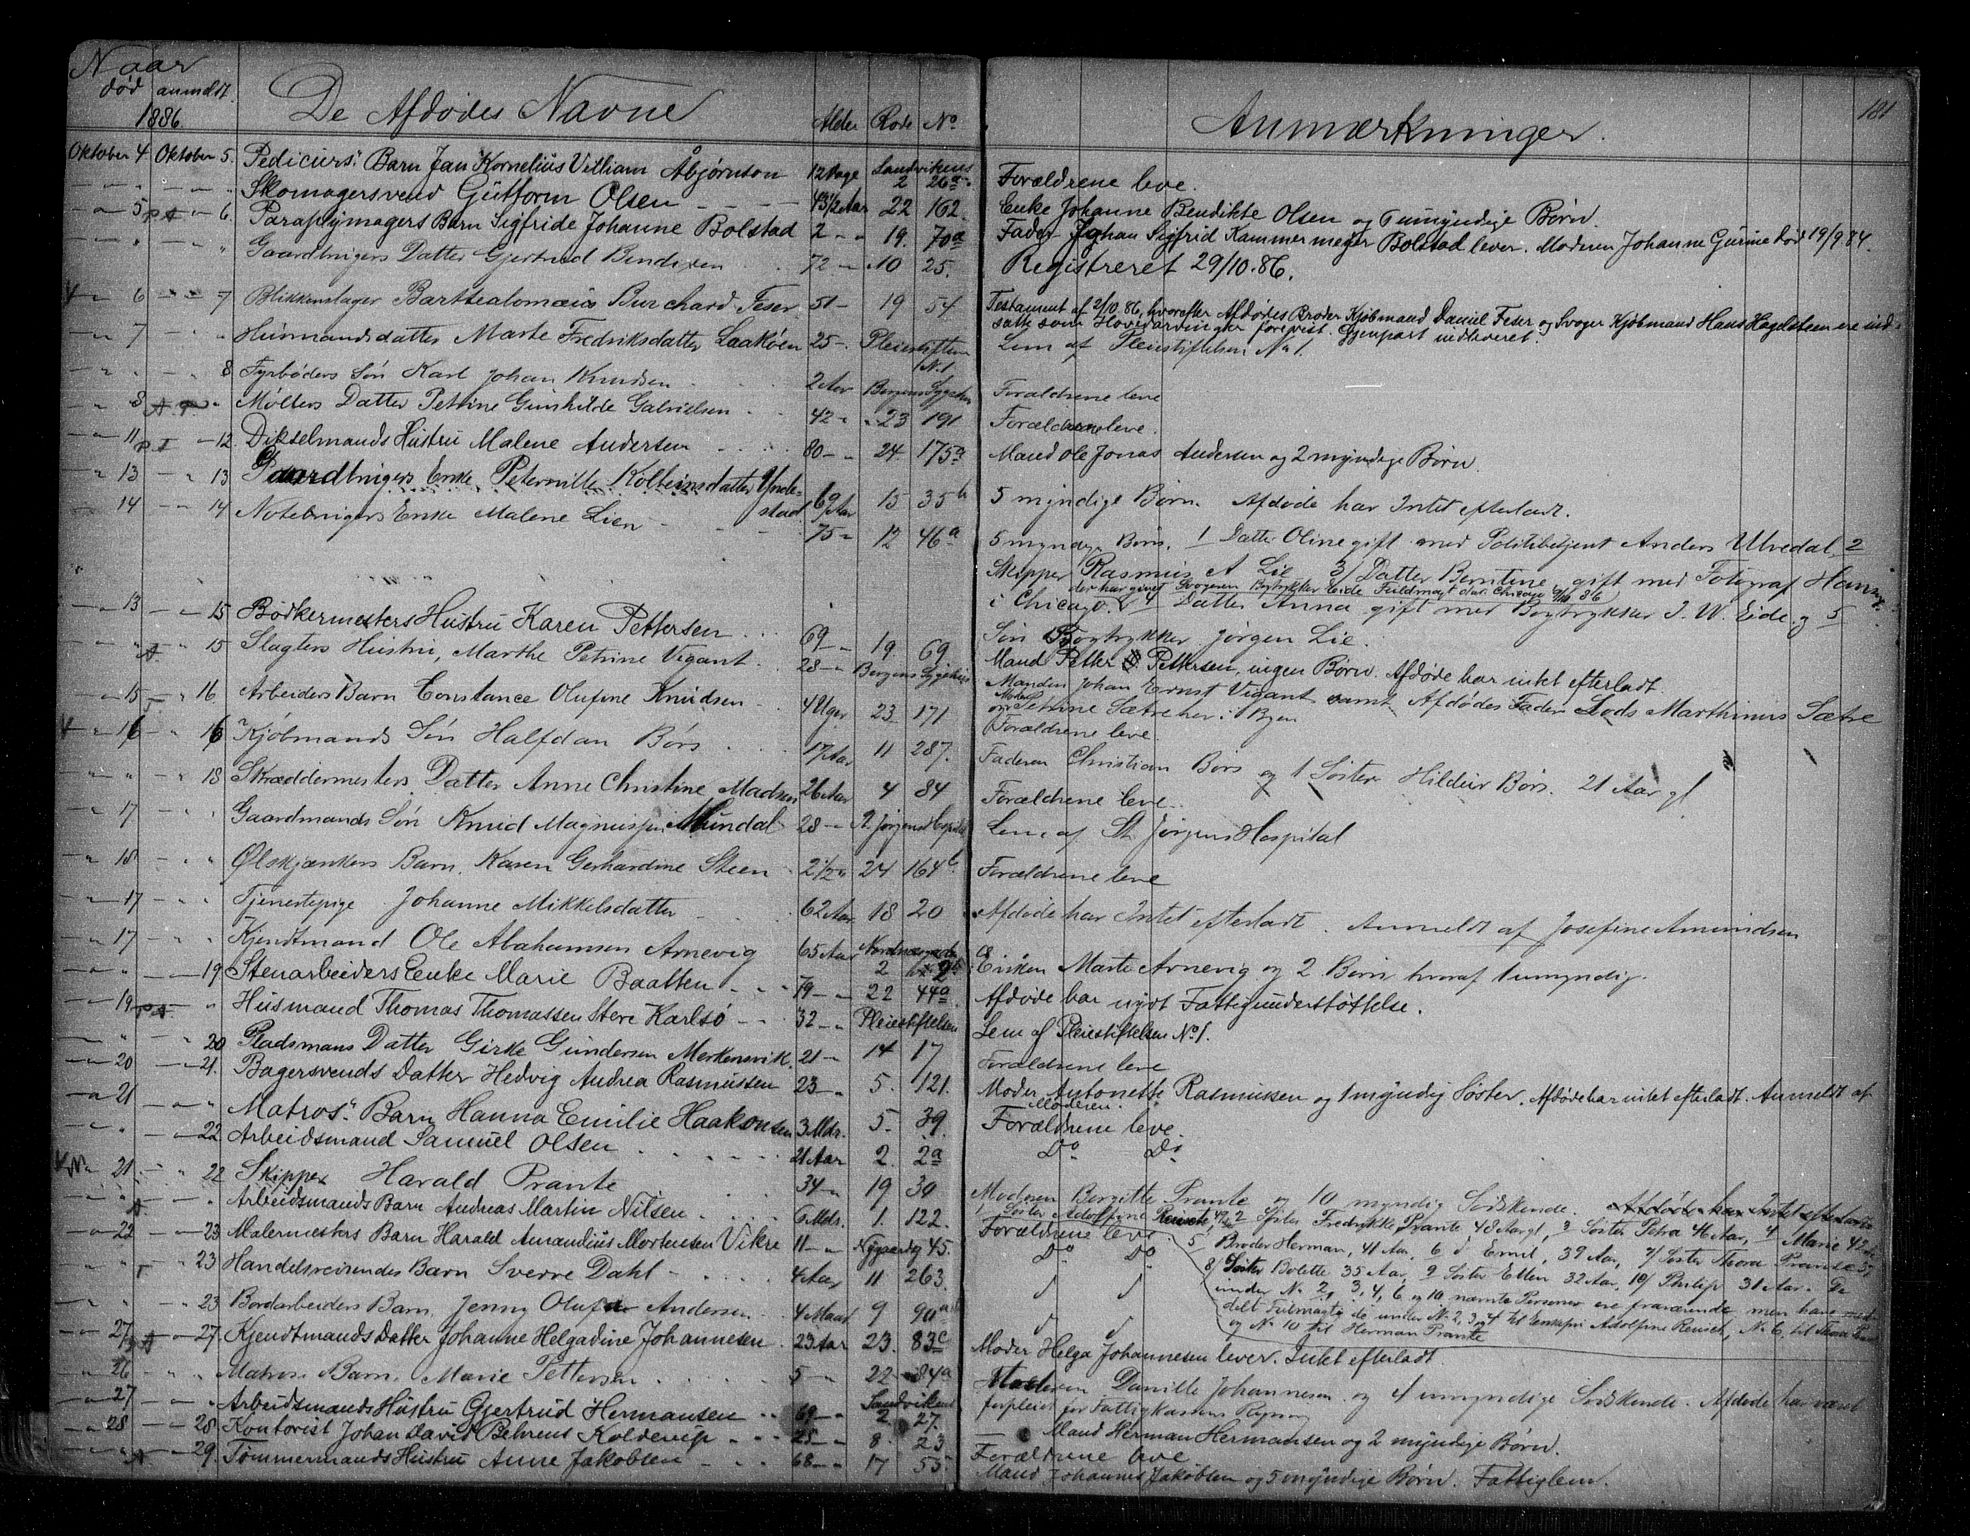 Naar
død anmeldt
1886.
De Afdødes Navne
Alder Rode No
Anmærkninger.
181
Oktober 4 Oktober 5. Pedicurs. Barn Jan Kornelius Villiam Åbjørnson 12 Dage Sandvikens 2 26a Forældrene leve.
Skomagersvend Guttorm Olsen 43 1/2 Aar 22 162. Enke Johanne Bendikte Olsen og 6 umyndige Børn.
5 6. Paraplymagers Barn Sigfride Johanne Bolstad 2 19. 70a Fader Johan Sigfrid Kammermeyer Bolstad lever. Moderen Johanne Gurine død 19/9 84.
Gaardbrugers Datter Gjertrud Bendixen 72 10 25. Registreret 29/10.86.
6 7 Blikkenslager Barthealomæus Burchard Feser 51 19 54 Testament af 2/10 86, hvorefter Afdødes Broder Kjøbmand Daniel Feser og Svoger Kjøbmand Hans Hagelsteen ere ind-
satte som Hovedarvinger forevist. Gjenpart indleveret.
7 Husmandsdatter Marte Fredriksdatter Laakøen 25 Pleiestiftelsen No 1 Lem af Pleiestiftelsen No 1.
8 Fyrbøders Søn Karl Johan Knudsen 2 Aar Bergens Sygehus Forældrene leve
8 Mølters Datter Petrine Gunhilde Gabrielsen 42 23 191 Forældrene leve.
11 12. Dikselmands Hustru Malene Andersen 80 24. 175a Mand Ole Jonas Andersen og 2 myndige Børn.
13 13 Gaardbrugers Enke, Peternille Kolbeinsdatter Yndestad 69 Aar 15 35b 5 myndige Børn. Afdøde har Intet efterladt.
14 14 Notebrugers Enke Malene Lien 75 12 46a 5 myndige Børn. 1 Datter Oline gift med Politibetjent Anders Ulvedal, 2
Skipper Rasmus A Lie 3/ Datter Berntine, gift med Fotograf Hansen
der har givet Svogeren Bogtrykker Eide Fuldmagt dat. Chicago 9/11 86
i Chicago & 4 Datter Anna gift med Bogtrykker J. W. Eide og 5
Søn Bogtrykker Jørgen Lie.
13 15 Bødkermesters Hustru Karen Pettersen 69 19 69 Mand Petter Pettersen, ingen Børn. Afdøde har intet efterladt.
15 Slagters Hustru, Marthe Petrine Vigant 28 Bergens Sygehus Manden Johan Ernst Vigant samt Afdødes Fader Lods Marthinus Sætre
og Moder Petrine Sætre her i Byen
15 16. Arbeiders Barn Constance Olufine Knudsen 4 Uger 23 171 Forældrene leve.
16 16 Kjøbmands Søn Halfdan Børs 17 Aar 11 287. Faderen Christian Børs og 1 Søster Hildur Børs. 21 Aar gl
18 Skræddermesters Datter Anne Christine Madsen 26 Aar 4 84 Forældrene leve.
17 Gaardmands Søn Knud Magnussen Mundal 28 St. Jørgens Hospital Lem af St. Jørgens Hospital
18 Ølskjænkers Barn. Karen Gerhardine Steen 2 1/2 24 164b Forældrene leve
17 Tjenestepige Johanne Mikkelsdatter 62 Aar 18 20 Afdøde har Intet efterladt. Anmeldt af Josefine Amundsen
17 Kjendtmand Ole Abahamsen Arnevig 65 Aar Nordnæs 2 Enken Marte Arnevig og 2 Børn hvoraf 1 umyndig.
19 Stenarbeiders Enke Marie Baatten 79 22 44a Afdøde har nydt Fattigunderstøttelse.
19 Husmand Thomas Thomassen Stere Karlsø 32 Pleiestiftelsen Lem af Pleiestiftelsen No 1.
20 Pladsmans Datter Girke Gundersen Merkensvik. 21 14 17 Forældrene leve
20 21. Bagersvends Datter Hedvig Andrea Rasmussen 23 5. 121. Moder Antonette Rasmussen og 1 myndig Søster. Afdøde har intet efterladt. Anmeldt af
Moderen.
21 Matros. Barn Hanna Emilie Haakonsen 3 Mdr. 5. 39. Forældrene leve.
22 Arbeidsmand Samuel Olsen 21 Aar 2. 2a Do Do
21 22 Skipper Harald Prante 34 19 30 Moderen Birgitte Prante og 10 myndig Sødskende. Afdøde har Intet efterladt
1 Søster Adolfine Reusch, 49, 2 Søster Fredrykke Prante 48 Aar gl, 3 Søster Petra 46 Aar, 4 Marie 42 Aar
5 Broder Herman, 41 Aar, 6 d Emil, 39 Aar, 7/ Søster Thora Prante 37
8/ Søster Bolette 35 Aar, 9 Søster Ellen 32 Aar, 10/ Philip 31 Aar. De
under No 2, 3, 4, 6 og 10 nævnte Personer ere fraværende men have med-
delt Fulmagt de under No 2, 3, 4 til Enkefru Adolfine Reusch, No 6, til Thora Prante
og No 10 til Herman Prante
Arbeidsmands Barn Andreas Martin Nilsen 6 Mdr. 1. 122. Forældrene leve
22 23 Malermesters Barn Harald Amandius Mortensen Vikre 11 Nygaardg 45. Do Do
23 Handelsreisendes Barn Sverre Dahl 4 Aar 11 263.
23 Bordarbeiders Barn, Jenny Olufa Andersen 4 Maan 9 90a
27 27. Kjendtmands Datter Johanne Helgadine Johannesen 23 Aar 23. 83c Moder Helga Johannesen lever. Intet efterladt.
26 Matros. Barn. Marie Pettersen 5 22 84a Moderen Danille Johannesen og 4 umyndige Sødskende. Afdøde har været
forpleiet for Fattigkassens Regning
27 Arbeidsmands Hustru Gjertrud Hermansen 69 Sandviken 2 27. Mand Herman Hermansen og 2 myndige Børn.
28 28 Kontorist Johan David Behrens Kolderup 25 8. 23 Forældrene leve
29. Tømmermands Hustru Anne Jakobsen 68 17 55. Mand Johannes Jakobsen og 5 myndige Børn. Fattiglem.